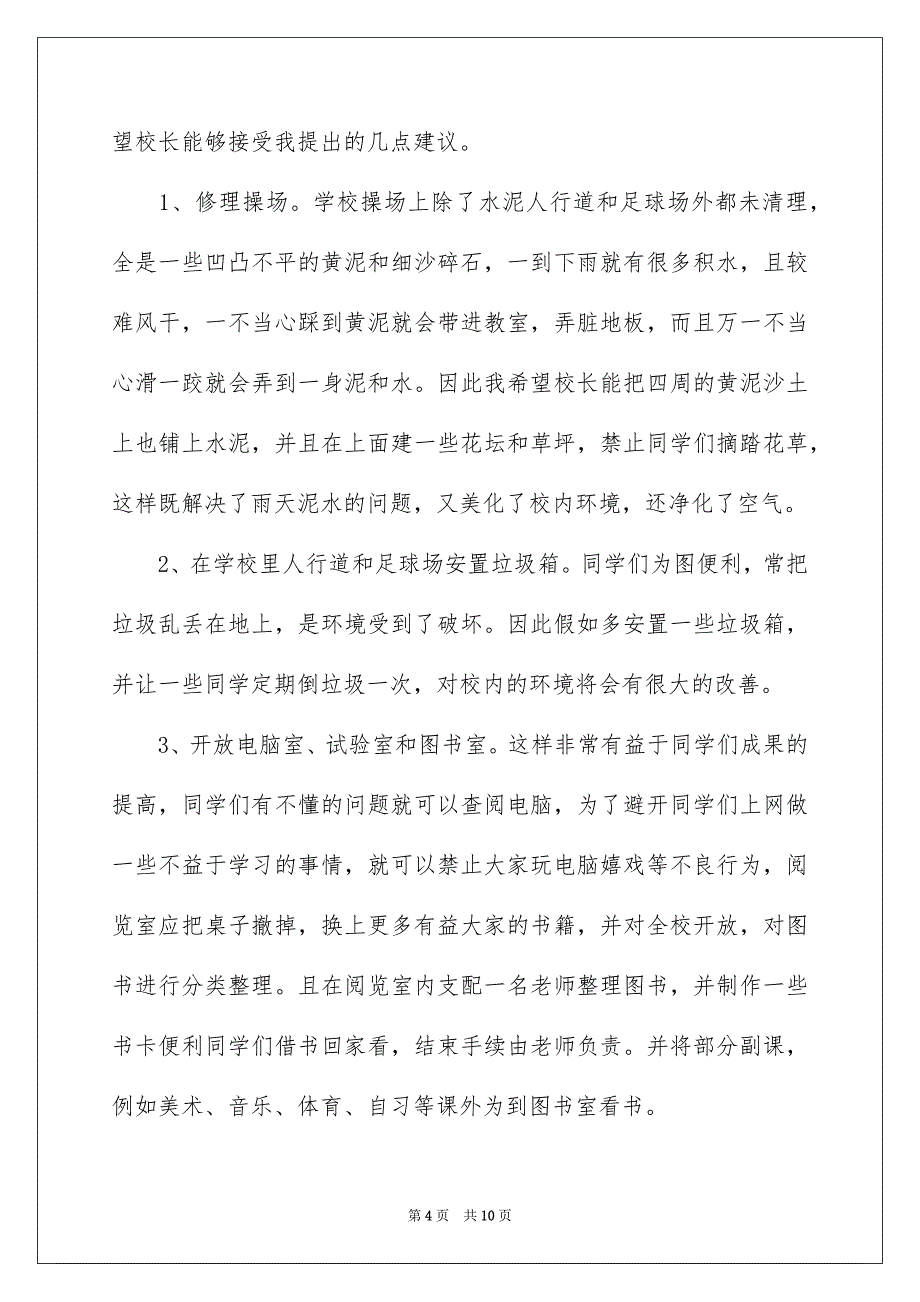 望校长能够接受我提出的几点建议。
1、修理操场。学校操场上除了水泥人行道和足球场外都未清理，
全是一些凹凸不平的黄泥和细沙碎石，一到下雨就有很多积水，且较
难风干，一不当心踩到黄泥就会带进教室，弄脏地板，而且万一不当
心滑一跤就会弄到一身泥和水。因此我希望校长能把四周的黄泥沙土
上也铺上水泥，并且在上面建一些花坛和草坪，禁止同学们摘踏花草，
这样既解决了雨天泥水的问题，又美化了校内环境，还净化了空气。
2、在学校里人行道和足球场安置垃圾箱。同学们为图便利，常把
垃圾乱丢在地上，是环境受到了破坏。因此假如多安置一些垃圾箱，
并让一些同学定期倒垃圾一次，对校内的环境将会有很大的改善。
3、开放电脑室、试验室和图书室。这样非常有益于同学们成果的
提高，同学们有不懂的问题就可以查阅电脑，为了避开同学们上网做
一些不益于学习的事情，就可以禁止大家玩电脑嬉戏等不良行为，阅
览室应把桌子撤掉，换上更多有益大家的书籍，并对全校开放，对图
书进行分类整理。且在阅览室内支配一名老师整理图书，并制作一些
书卡便利同学们借书回家看，结束手续由老师负责。并将部分副课，
例如美术、音乐、体育、自习等课外为到图书室看书。
第 4 页 共 10 页